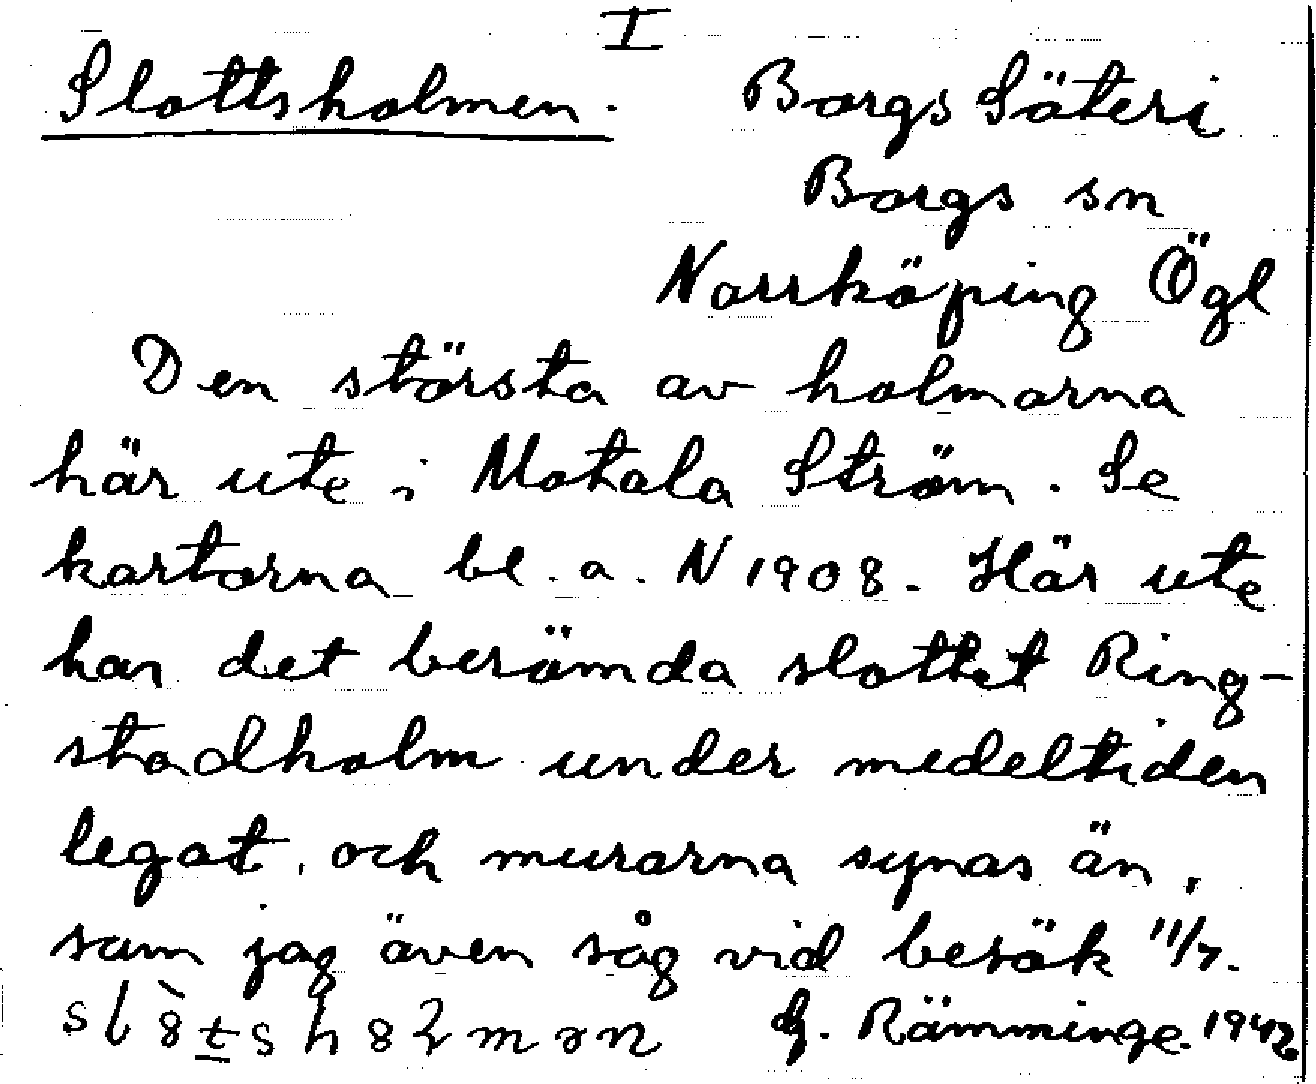 I
Slottsholmen. Borgs Säteri
Borgs sn
Norrköping Ögl
Den största av holmarna
här ute i Motala Ström. Se
kartorna bl. a. N 1908. Här ute
har det berömda slottet Ring-
stadholm under medeltiden
legat, och murarna synas än,
som jag även såg vid besök 11/7.
Rämminge. 1942